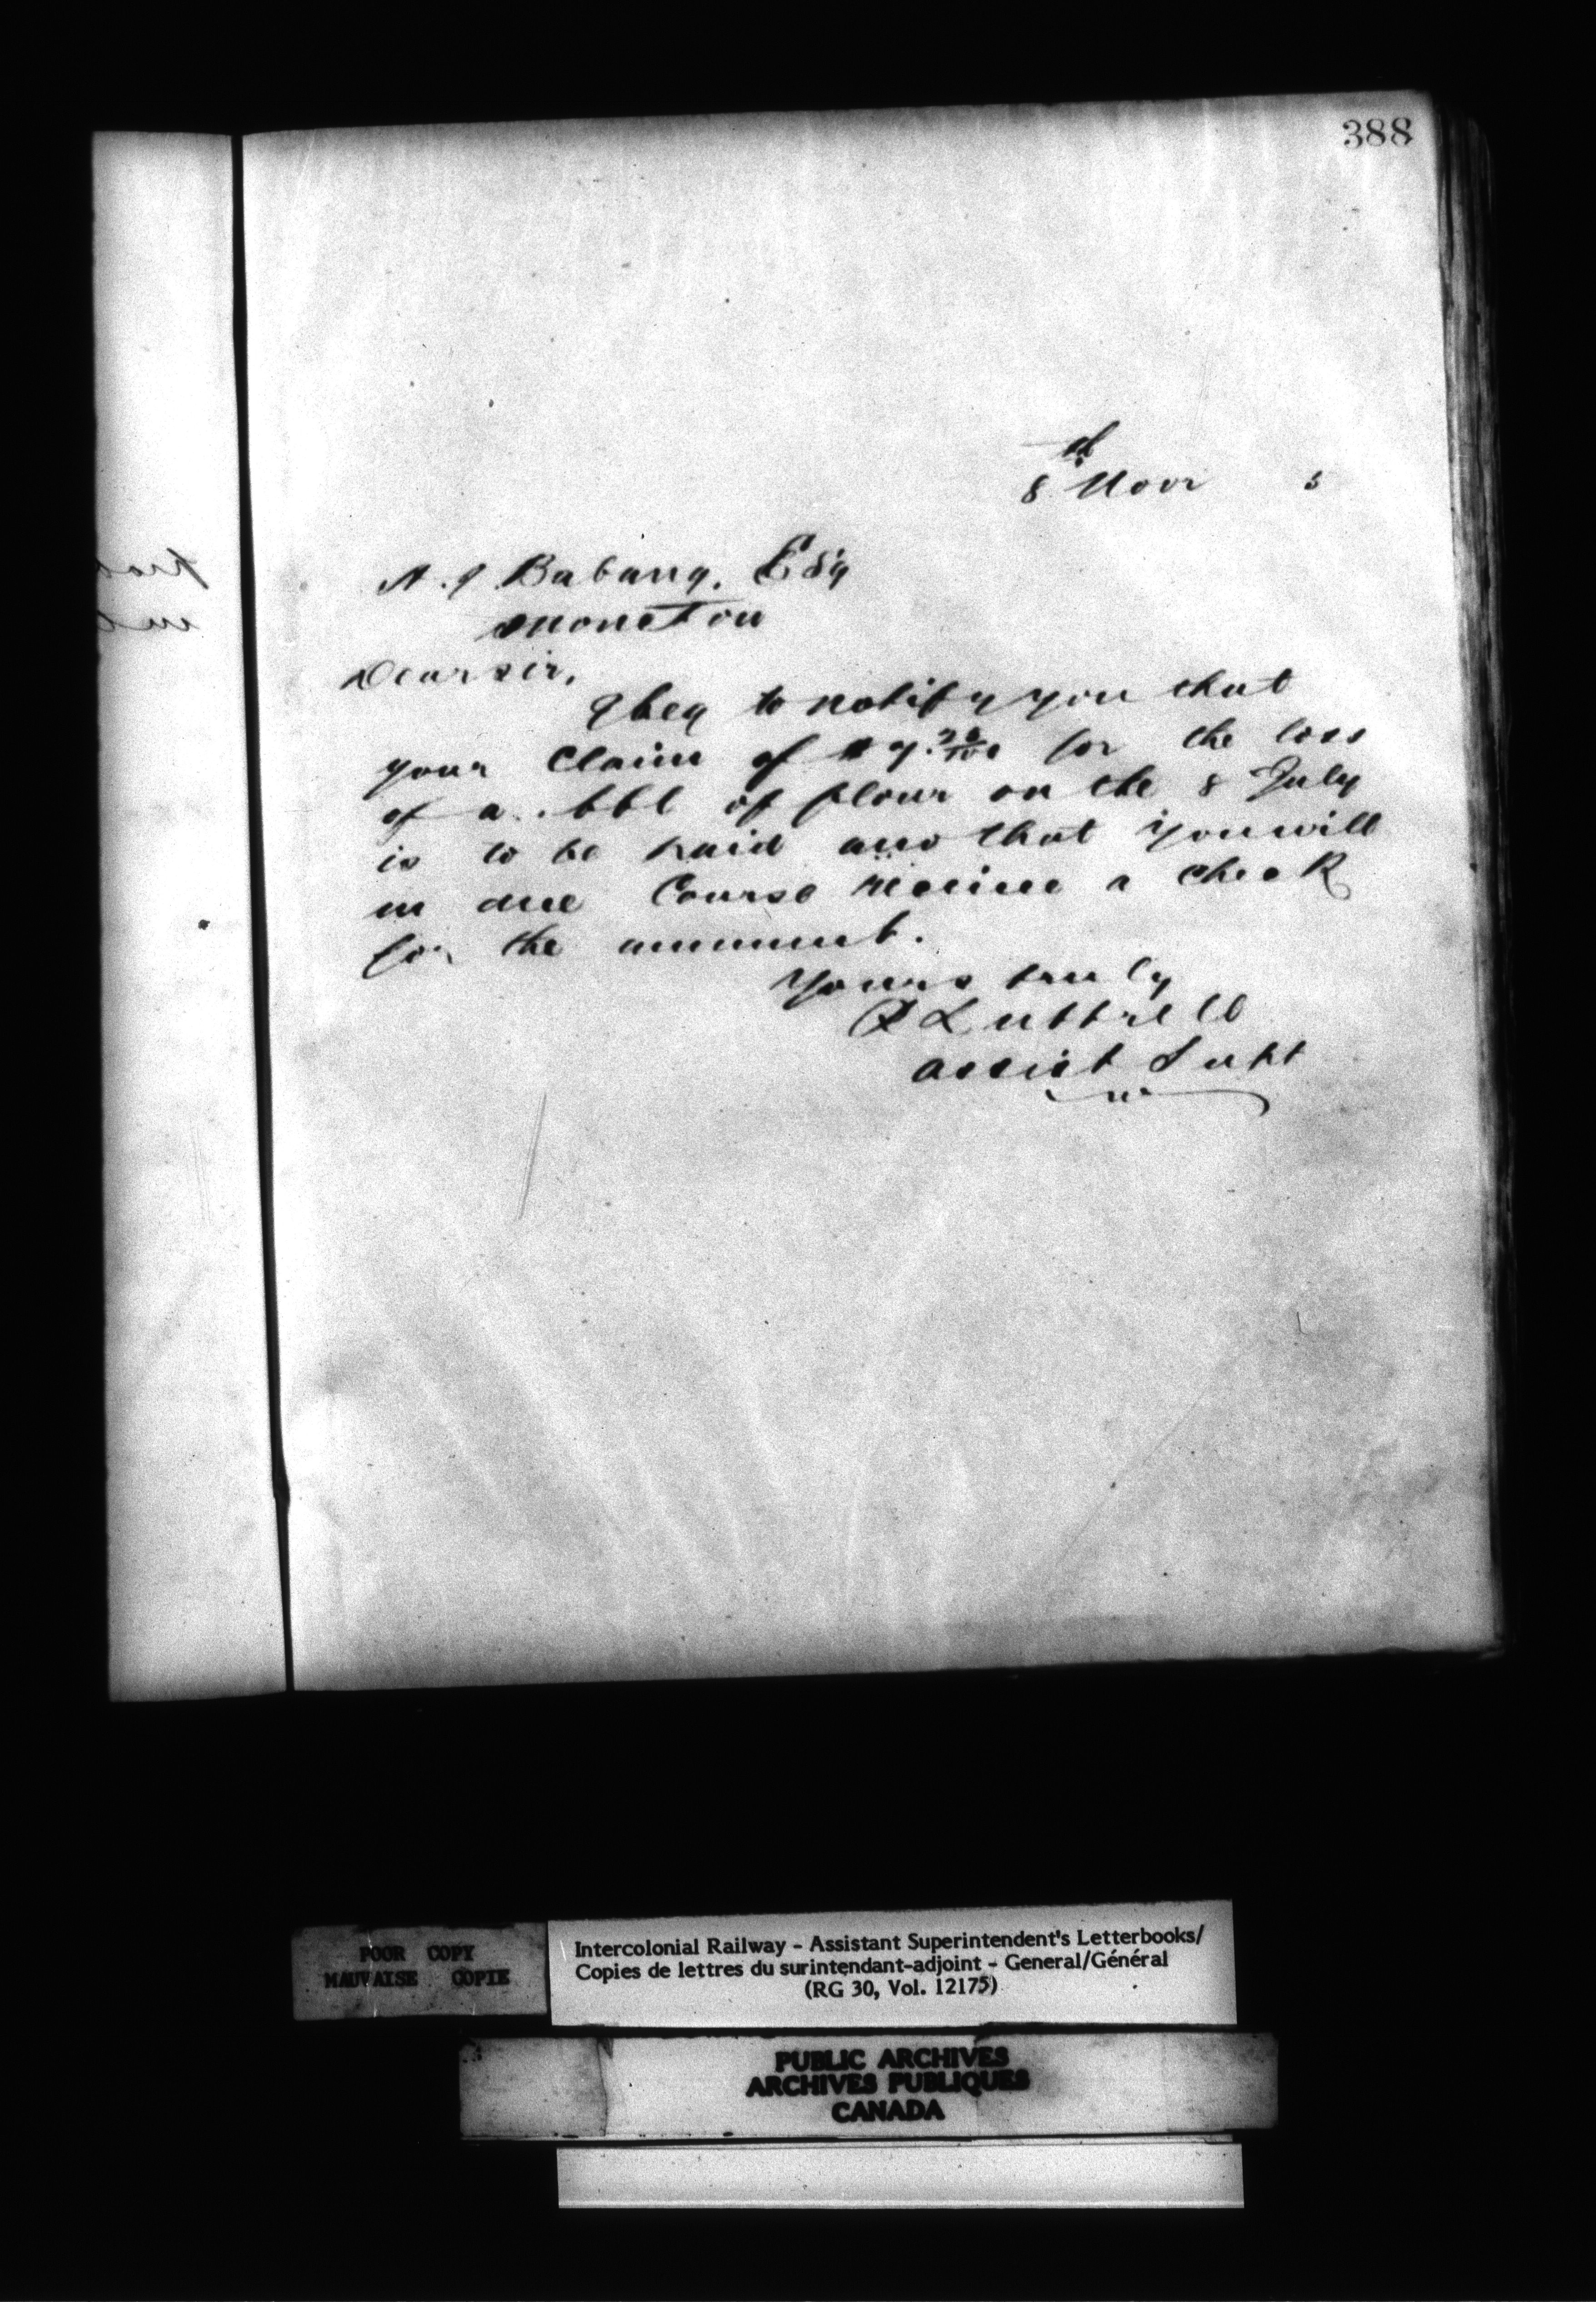 388
8th Novr 5
A. J Babang. Esq
Moncton
Dear sir,
I beg to notify you that
your Claim of $ 7.20/100 for the loss
of a bbl of flour on the 8 July
is to be paid and that you will
in due Course receive a check
for the ammount.
Yours truly
P Luttrell
Assist Supt
POOR COPY
MAUVAISE COPIE
Intercolonial Railway - Assistant Superintendent's Letterbooks/
Copies de lettres du surintendant-adjoint - General/Général
(RG 30, Vol. 12175)
PUBLIC ARCHIVES
ARCHIVES PUBLIQUES
CANADA